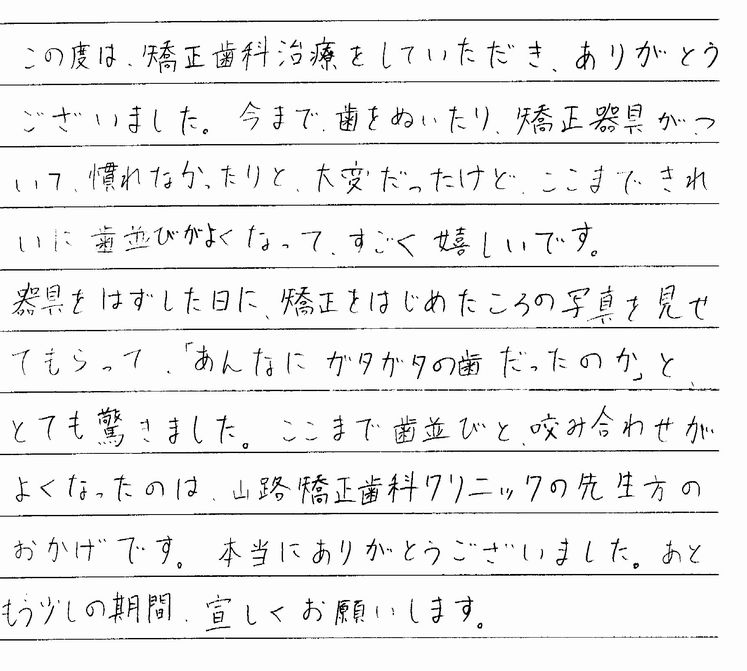 この度は、矯正歯科治療をしていただき、ありがとう
ございました。今まで、歯をぬいたり、矯正器具が、つ
いて、慣れなかったりと、大変だったけど、ここまできれ
いに歯並びがよくなって、すごく嬉しいです。
器具をはずした日に、矯正をはじめたころの写真を見せ
てもらって、「あんなにガタガタの歯だったのか」と、
とても驚きました。ここまで歯並びと、咬み合わせが
よくなったのは、山路矯正歯科クリニックの先生方の
おかげです。本当にありがとうございました。あと
もう少しの期間、宜しくお願いします。